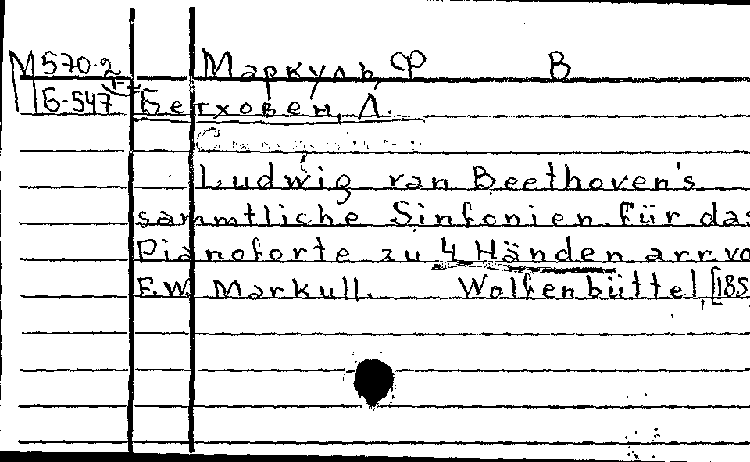 М570-2 Маркуль, Ф В
Б-547 Бетховен, Л.
Ludwig van Beethoven's
sämmtliche Sinfonien für das
Pianoforte zu 4 Händen arr vo
F.W. Markull. Wolfenbüttel, [185